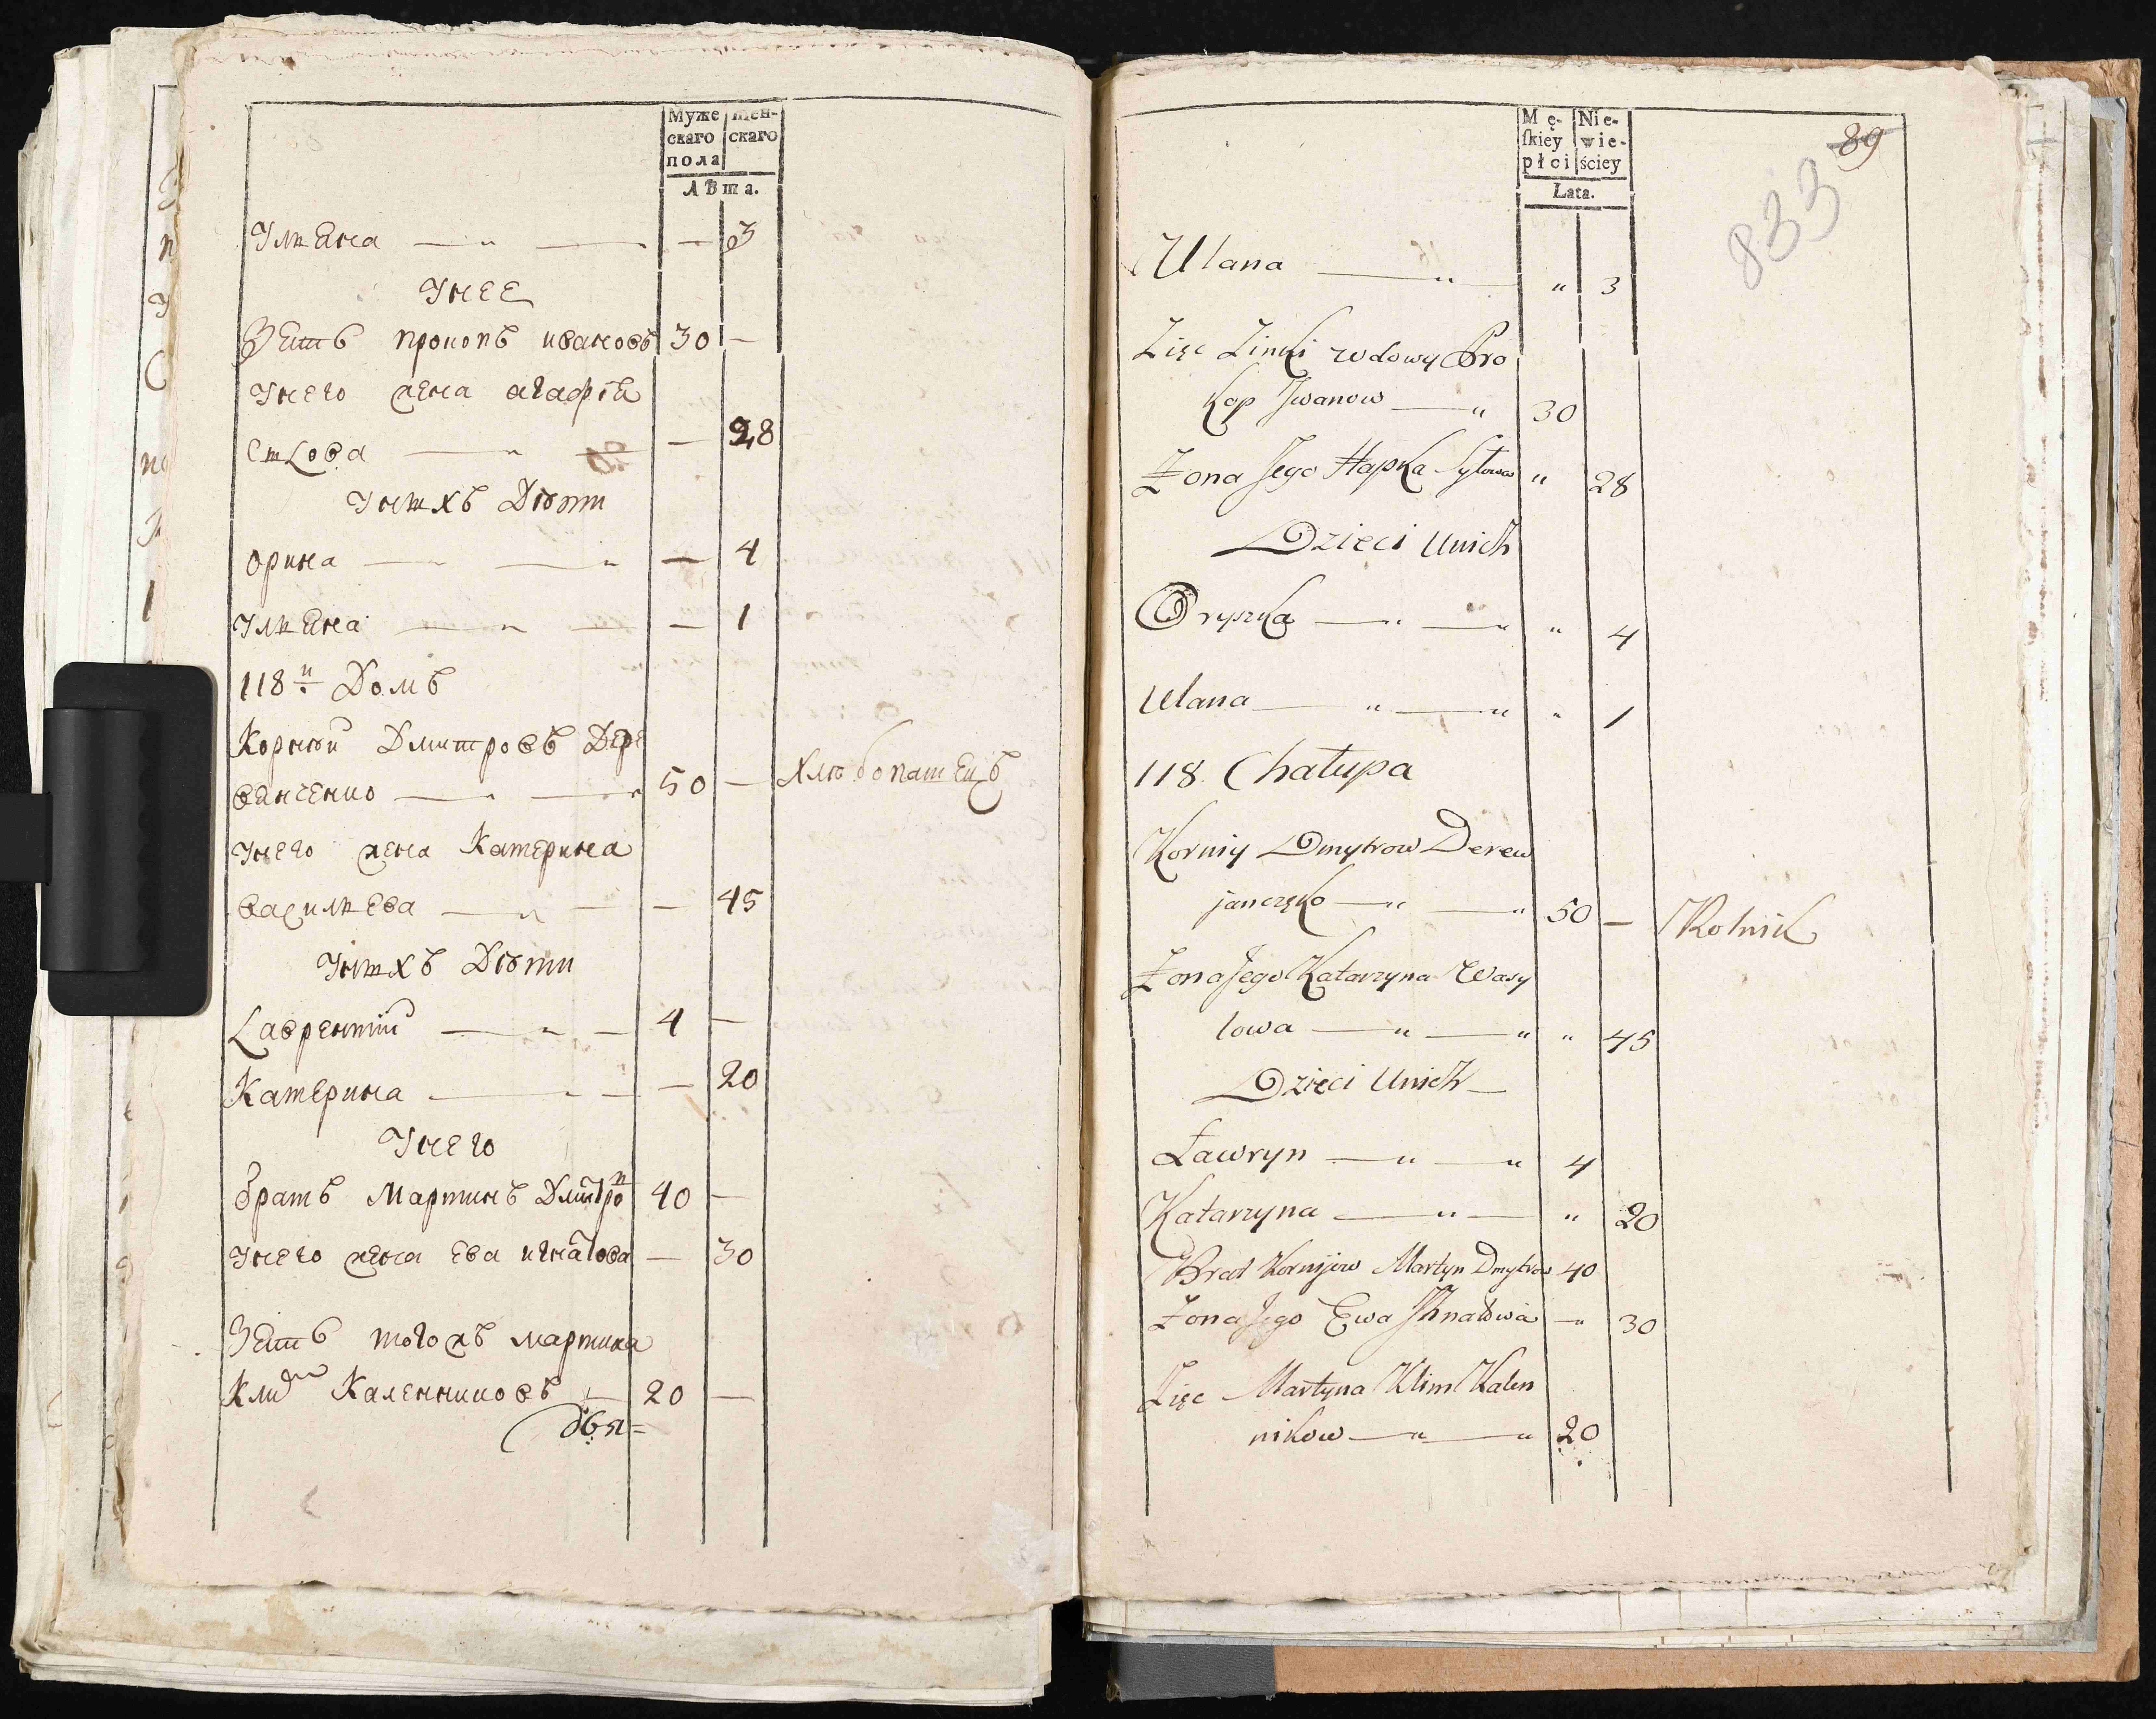 Муже
скаго
пола
жен-
скаго
Лѣта.
Ульяна — „ — — 3
У нее
Зять прокопъ ивановъ 30 —
У него жена агафія
— 28
У нихъ Дѣти
орина — „ — „ — 4
Ульяна — „ — — 1
118й Домъ
Корнѣй Дмитровъ Дере
вянченко — „ — „ 50 — Хлѣбопашецъ
У него жена Катерина
васильева — „ — — 45
У нихъ Дѣти
Лаврентій — „ — 4 —
Катерина — „ — — 20
У него
братъ Мартинъ Дмитро 40 —
У него жена Ева игнатова — 30
Зять того жъ мартина
Клим Каленниковъ — 20 —
Mę-
ſkiey
płci
Nie-
wie-
ściey
Lata.
89
833
Ulana — „ — „ 3
Zięc Zinki wdowy Pro
kop Jwanow — „ 30
Żona Jego Hapka Sytowa „ 28
Dzieci Unich
Oryszka — „ — „ „ 4
Ulana — „ — „ „ 1
118. Chałupa
Korniy Dmytrow Derew
janczęko — „ — „ 50 — Rolnik
Żona Jego Katarzyna Wasy
lowa — „ — „ „ 45
Dzieci Unich —
Ławryn — „ — „ 4
Katarzyna — „ — „ 20
Brat Kornijow Martyn Dmytrow 40
Żona Jego Ewa Jhnatowa — „ 30
Zięc Martyna Klim Kalen
nikow — „ — „ 20